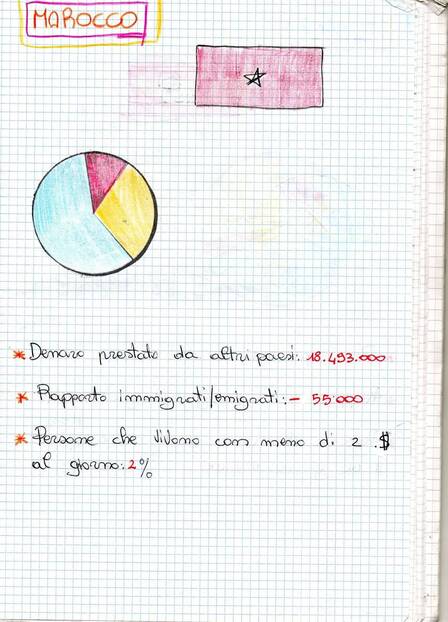 MAROCCO
* Denaro prestato da altri paesi: 18.493.000
* Rapporto immigrati/emigrati: - 55.000
* Persone che vivono con meno di 2 $
al giorno: 2%